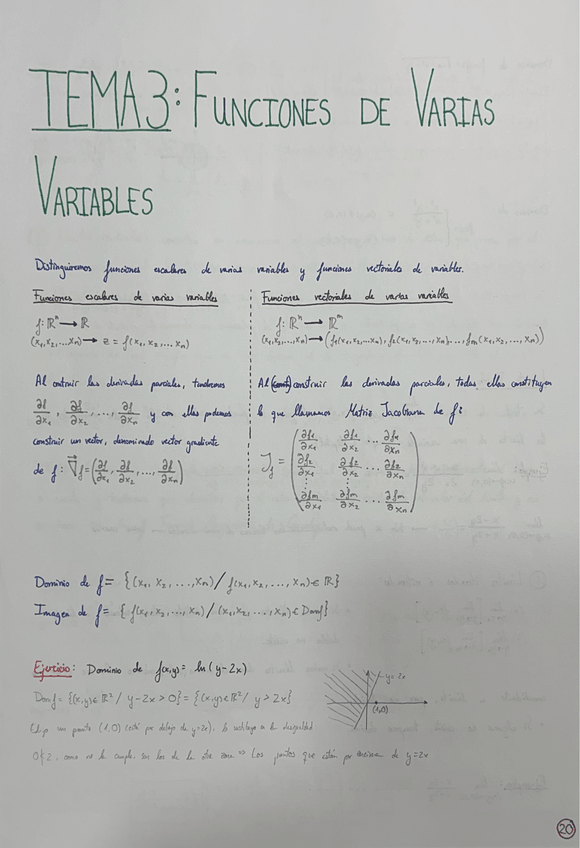 TEMA 3: FUNCIONES DE VARIAS
VARIABLES
Distinguiremos funciones escalares de varias variables y funciones vectoriales de variables.
Funciones escalares de varias variables
f: ℝⁿ → ℝ
(x₁, x₂, ... xₙ) → z = f(x₁, x₂, ... xₙ)
Al contruir las derivadas parciales, tendremos
∂f/∂x₁, ∂f/∂x₂, ..., ∂f/∂xₙ y con ellas podemos
construir un vector, denominado vector gradiente
de f: ∇⃗f = (∂f/∂x₁, ∂f/∂x₂, ..., ∂f/∂xₙ)
Funciones vectoriales de varias variables
f: ℝⁿ → ℝᵐ
(x₁, x₂, ... xₙ) → (f₁(x₁, x₂, ... xₙ), f₂(x₁, x₂, ..., xₙ) ... fₘ(x₁, x₂, ..., xₙ))
Al construir las derivadas parciales, todas ellas constituyen
lo que llamamos Matriz Jacobiana de f:
J_f = ( ∂f₁/∂x₁ ∂f₁/∂x₂ ... ∂f₁/∂xₙ
∂f₂/∂x₁ ∂f₂/∂x₂ ... ∂f₂/∂xₙ
⋮
∂fₘ/∂x₁ ∂fₘ/∂x₂ ... ∂fₘ/∂xₙ )
Dominio de f = {(x₁, x₂, ..., xₙ) / f(x₁, x₂, ..., xₙ) ∈ ℝ}
Imagen de f = {f(x₁, x₂, ..., xₙ) / (x₁, x₂, ..., xₙ) ∈ Domf}
Ejercicio: Dominio de f(x,y) = ln(y-2x)
Domf = {(x,y) ∈ ℝ² / y-2x > 0} = {(x,y) ∈ ℝ² / y > 2x}
y = 2x
(1,0)
Elijo un punto (1,0) (está por debajo de y=2x), lo sustituyo en la desigualdad
0≮2, como no la cumple, son los de la otra zona ⇒ Los puntos que están por encima de y=2x
20